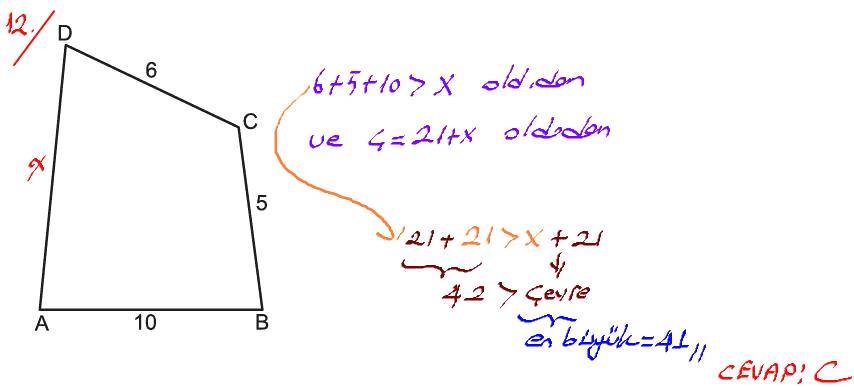 12.
D
6
C
x
5
A
10
B
6+5+10 > x olduğdan
ve Ç = 21+x olduğdan
21 + 21 > x + 21
42 > Çevre
en büyük = 41,,
CEVAP: C